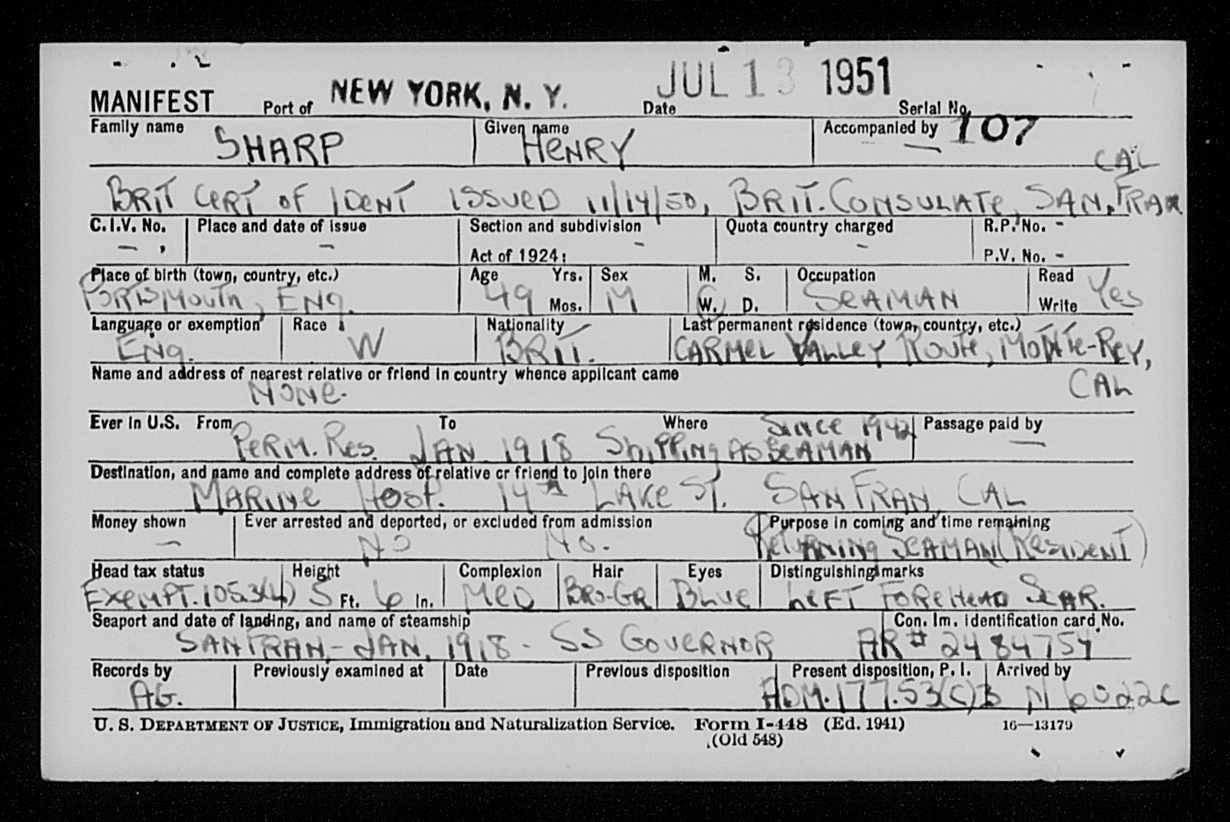 MANIFEST Port of NEW YORK, N. Y. Date JUL 13 1951 Serial No.
Family name SHARP Given name HENRY Accompanied by — 107
CAL
BRIT CERT OF IDENT ISSUED 11/14/50, BRIT. CONSULATE, SAN, FRAN
C.I.V. No. — Place and date of issue — Section and subdivision — Quota country charged — R.P. No. -
Act of 1924: P.V. No. -
Place of birth (town, country, etc.) Age Yrs. Sex M. S. Occupation Read
PORTSMOUTH, ENG. 49 Mos. M W. D. SEAMAN Write Yes
Language or exemption Race Nationality Last permanent residence (town, country, etc.)
ENG. W BRIT. CARMEL VALLEY ROUTE, MONTE-REY,
Name and address of nearest relative or friend in country whence applicant came
NONE. CAL
Ever in U.S. From To Where SINCE 1942 Passage paid by —
PERM. RES. JAN 1918 SHIPPING AS SEAMAN
Destination, and name and complete address of relative or friend to join there
MARINE HOSP. LAKE ST. SAN FRAN, CAL
Money shown Ever arrested and deported, or excluded from admission Purpose in coming and time remaining
— NO No. RETURNING SEAMAN (RESIDENT)
Head tax status Height Complexion Hair Eyes Distinguishing marks
EXEMPT. 105.3(4) 5 Ft. 6 In. MED BRO-GR BLUE LEFT FOREHEAD SCAR.
Seaport and date of landing, and name of steamship Con. Im. Identification card No.
SAN FRAN,- JAN, 1918 - SS GOVERNOR AR# 2484754
Records by Previously examined at Date Previous disposition Present disposition, P. I. Arrived by
AG. ADM. 177.53(C)B
U. S. DEPARTMENT OF JUSTICE, Immigration and Naturalization Service. Form I-448 (Ed. 1941) 16—13179
(Old 548)